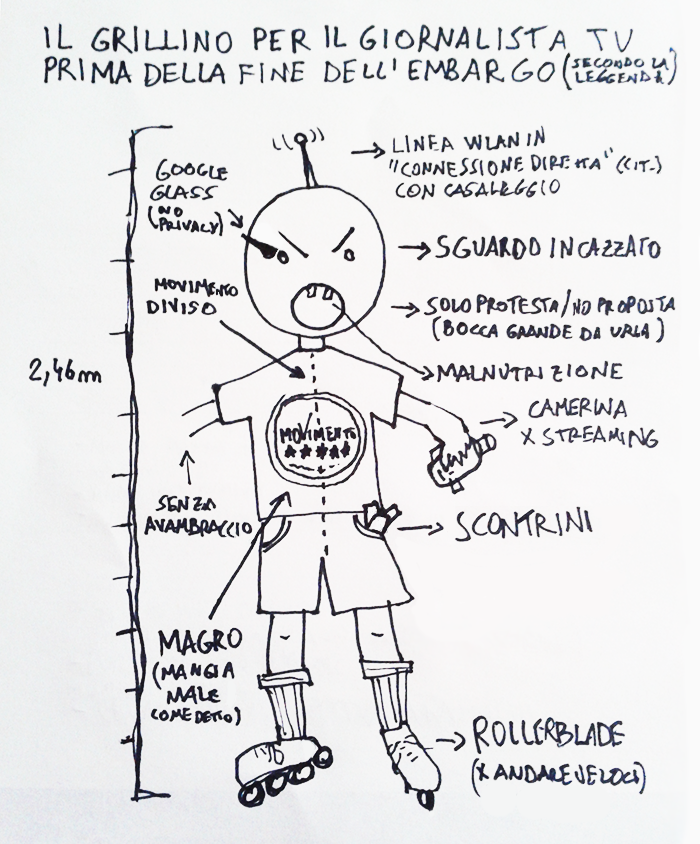 IL GRILLINO PER IL GIORNALISTA TV
PRIMA DELLA FINE DELL'EMBARGO (SECONDO LA
LEGGENDA)
LINEA WLAN IN
"CONNESSIONE DIRETTA" (CIT.)
CON CASALEGGIO
GOOGLE
GLASS
(NO
PRIVACY)
SGUARDO INCAZZATO
MOVIMENTO
DIVISO
SOLO PROTESTA/NO PROPOSTA
(BOCCA GRANDE DA URLA)
2,46m
MALNUTRIZIONE
CAMERINA
X STREAMING
MOVIMENTO
★★★★★
SENZA
AVAMBRACCIO
SCONTRINI
MAGRO
(MANGIA
MALE
COME DETTO)
ROLLERBLADE
(X ANDARE VELOCI)